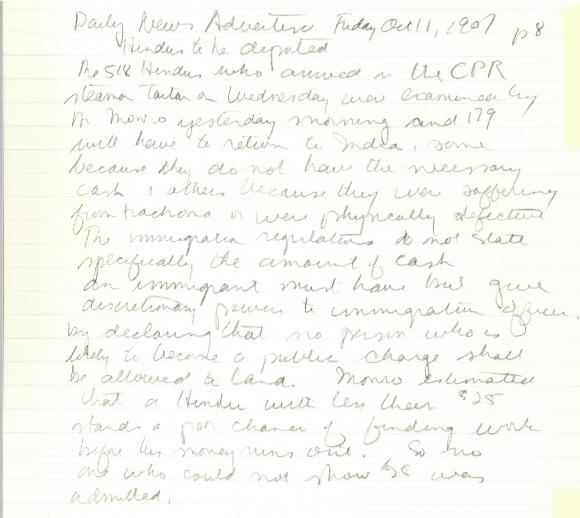 Daily News Advertiser Friday Oct 11, 1907 p 8
Hindus to be deported
The 518 Hindus who arrived on the CPR
steamer Tartar on Wednesday were examined by
Dr Monro yesterday morning and 179
will have to return to India, some
because they do not have the necessary
cash & others because they were suffering
from trachoma or were physically defective
The immigration regulations do not state
specifically the amount of cash
an immigrant must have but give
discretionary powers to immigration officer.
by declaring that no person who is
likely to become a public charge shall
be allowed to land. Monro estimated
that a Hindu with less than $25
stands a poor chance of finding work
before his money runs out. So no
one who could not show $25 was
admitted.